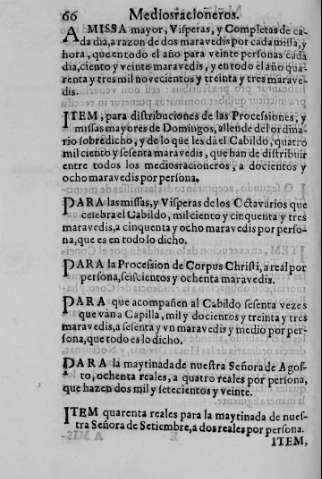 66 Mediosracioneros.
A MISSA mayor, Visperas, y Completas de ca-
da dia, a razon de dos maravedis por cada missa, y
hora, que en todo el año para veinte personas cada
dia, ciento y veinte maravedis, y en todo el año qua-
renta y tres mil novecientos y treinta y tres marave-
dis.
ITEM, para distribuciones de las Processiones, y
missas mayores de Domingos, allende del ordina-
rio sobredicho, y de lo que les dà el Cabildo, quatro
mil ciento y sesenta maravedis, que han de distribuir
entre todos los mediosracioneros, a docientos y
ocho maravedis por persona.
PARA las missas, y Visperas de los Octavarios que
celebra el Cabildo, mil ciento y cinquenta y tres
maravedis, a cinquenta y ocho maravedis por perso-
na, que es en todo lo dicho.
PARA la Procession de Corpus Christi, a real por
persona, seiscientos y ochenta maravedis.
PARA que acompañen al Cabildo sesenta vezes
que van a Capilla, mil y docientos y treinta y tres
maravedis, a sesenta y vn maravedis y medio por per-
sona, que todo es lo dicho.
PARA la maytinada de nuestra Señora de Agos-
to, ochenta reales, a quatro reales por persona,
que hazen dos mil y setecientos y veinte.
ITEM quarenta reales para la maytinada de nues-
tra Señora de Setiembre, a dos reales por persona.
ITEM,